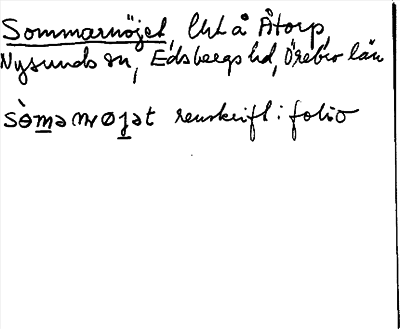 Sommarnöjet, lht å Åtorp,
Nysunds sn, Edsbergs hd, Örebro län
sòmanrøjət renskrift i folio